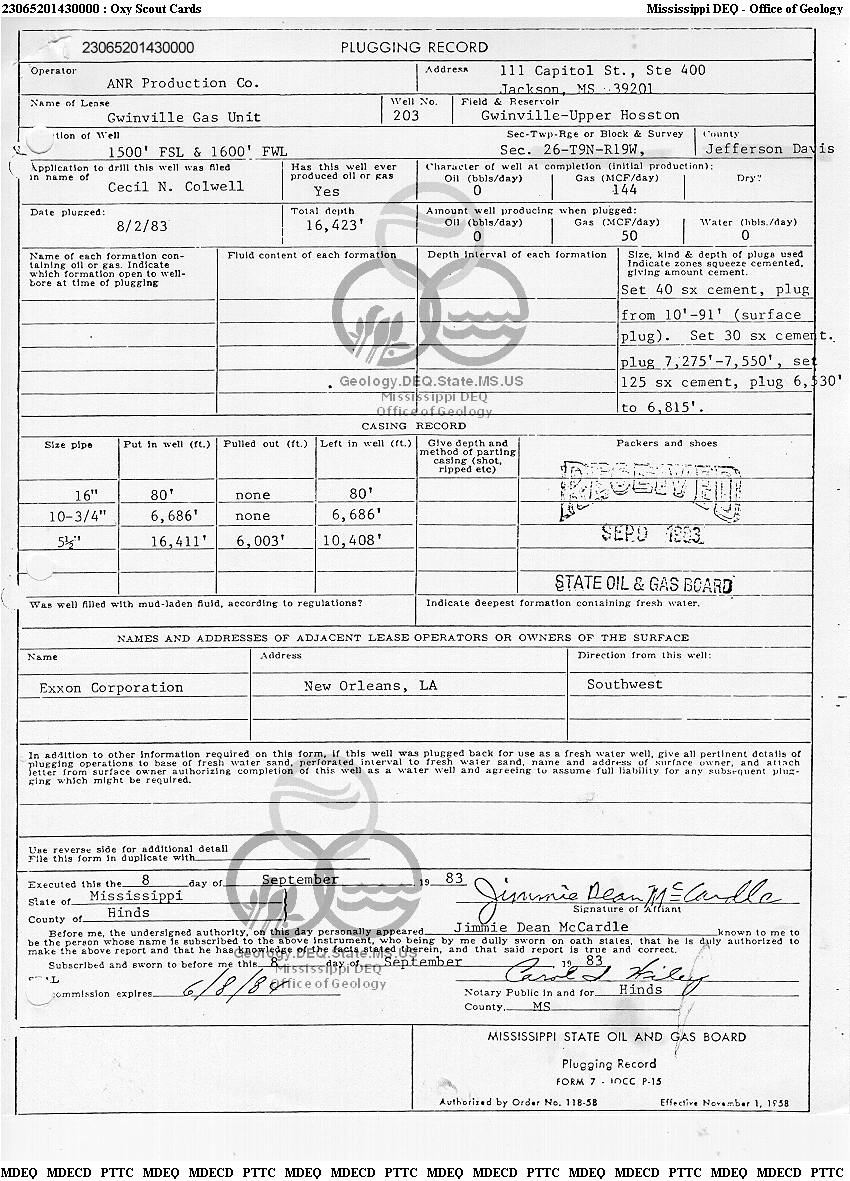 23065201430000 : Oxy Scout Cards Mississippi DEQ - Office of Geology
23065201430000 PLUGGING RECORD
Operator Address 111 Capitol St., Ste 400
ANR Production Co. Jackson, MS 39201
Name of Lease Well No. Field & Reservoir
Gwinville Gas Unit 203 Gwinville-Upper Hosston
tion of Well Sec-Twp-Rge or Block & Survey County
1500' FSL & 1600' FWL Sec. 26-T9N-R19W, Jefferson Davis
Application to drill this well was filed Has this well ever Character of well at completion (initial production):
in name of produced oil or gas Oil (bbls/day) Gas (MCF/day) Dry?
Cecil N. Colwell Yes 0 144
Date plugged: Total depth Amount well producing when plugged:
Oil (bbls/day) Gas (MCF/day) Water (bbls./day)
8/2/83 16,423' 0 50 0
Name of each formation con- Fluid content of each formation Depth interval of each formation Size, kind & depth of plugs used
taining oil or gas. Indicate Indicate zones squeeze cemented,
which formation open to well- giving amount cement.
bore at time of plugging
Set 40 sx cement, plug
from 10'-91' (surface
plug). Set 30 sx cement.
plug 7,275'-7,550', set
125 sx cement, plug 6,530'
to 6,815'.
Geology.DEQ.State.MS.US
Mississippi DEQ
Office of Geology
CASING RECORD
Size pipe Put in well (ft.) Pulled out (ft.) Left in well (ft.) Give depth and Packers and shoes
method of parting
casing (shot,
ripped etc)
16" 80' none 80'
10-3/4" 6,686' none 6,686'
5½" 16,411' 6,003' 10,408'
RECEIVED
STATE OIL & GAS BOARD
Was well filled with mud-laden fluid, according to regulations? Indicate deepest formation containing fresh water.
NAMES AND ADDRESSES OF ADJACENT LEASE OPERATORS OR OWNERS OF THE SURFACE
Name Address Direction from this well:
Exxon Corporation New Orleans, LA Southwest
In addition to other information required on this form, if this well was plugged back for use as a fresh water well, give all pertinent details of
plugging operations to base of fresh water sand, perforated interval to fresh water sand, name and address of surface owner, and attach
letter from surface owner authorizing completion of this well as a water well and agreeing to assume full liability for any subsequent plug-
ging which might be required.
Use reverse side for additional detail
File this form in duplicate with
Executed this the 8 day of September 19 83
State of Mississippi Jimmie Dean McCardle
Signature of Affiant
County of Hinds
Before me, the undersigned authority, on this day personally appeared Jimmie Dean McCardle known to me to
be the person whose name is subscribed to the above instrument, who being by me dully sworn on oath states, that he is duly authorized to
make the above report and that he has knowledge of the facts stated therein, and that said report is true and correct.
Geology.DEQ.State.MS.US
Subscribed and sworn to before me this 8 day of September 19 83
Mississippi DEQ
Office of Geology
ommission expires 6/8/84 Notary Public in and for Hinds
County, MS
MISSISSIPPI STATE OIL AND GAS BOARD
Plugging Record
FORM 7 - IOCC P-15
Authorized by Order No. 118-58 Effective November 1, 1958
MDEQ MDECD PTTC MDEQ MDECD PTTC MDEQ MDECD PTTC MDEQ MDECD PTTC MDEQ MDECD PTTC MDEQ MDECD PTTC